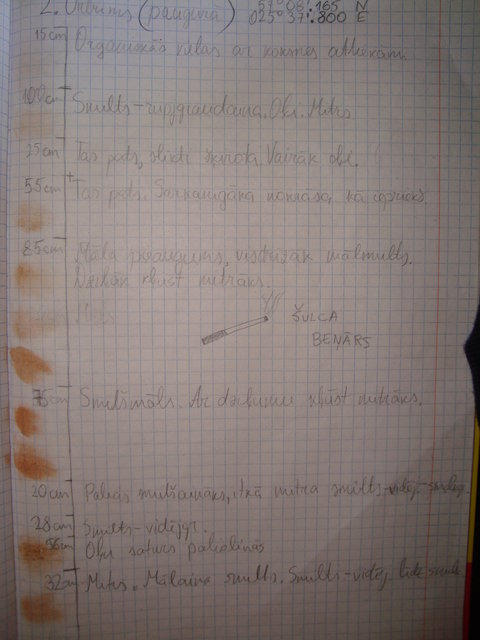 2. Urbums (paugurā) 57°06'.165 N
025°37'.800 E
15cm Organiskās vielas ar koksnes atliekām.
100cm Smilts-rupjgraudaina. Oļi. Mitrs
25cm Tas pats, slikti šķirota. Vairāk oļi.
55cm Tas pats. Sarkanīgāka nokrāsa, kā iepriekš
85cm Māla pieaugums, visdrīzāk mālsmilts.
Dziļāk kļūst mitrāks.
ŠULCA
BEŅĀRS
76cm Smilšmāls. Ar dziļumu kļūst mitrāks.
20cm Paliek smilšaināks, mitra smilts-vidēji
28cm Smilts-vidējgr.
56cm Oļu saturs palielinās
32cm Mitrs. Mālaina smilts. Smilts-vidēj